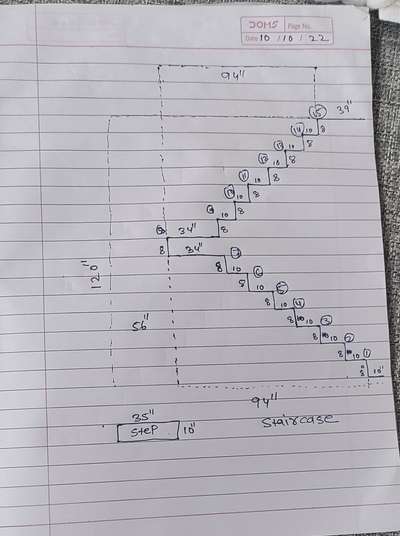 DOMS Page No.
Date 10 / 10 / 22
94"
15 39"
14 10 8
13 10 8
12 10 8
11 10 8
10 10 8
9 10 8
8 34"
8 34" 7
8 10 6
8 10 5
8 10 4
8 10 3
8 10 2
8 10 1
8" 10"
120"
56"
94"
Staircase
35"
SteP 10"